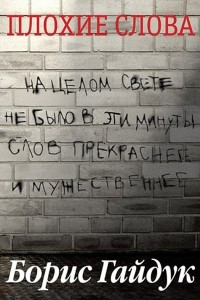 ПЛОХИЕ СЛОВА
НА ЦЕЛОМ СВЕТЕ
НЕ БЫЛО В ЭТИ МИНУТЫ
СЛОВ ПРЕКРАСНЕЕ
И МУЖЕСТВЕННЕЕ
Борис Гайдук